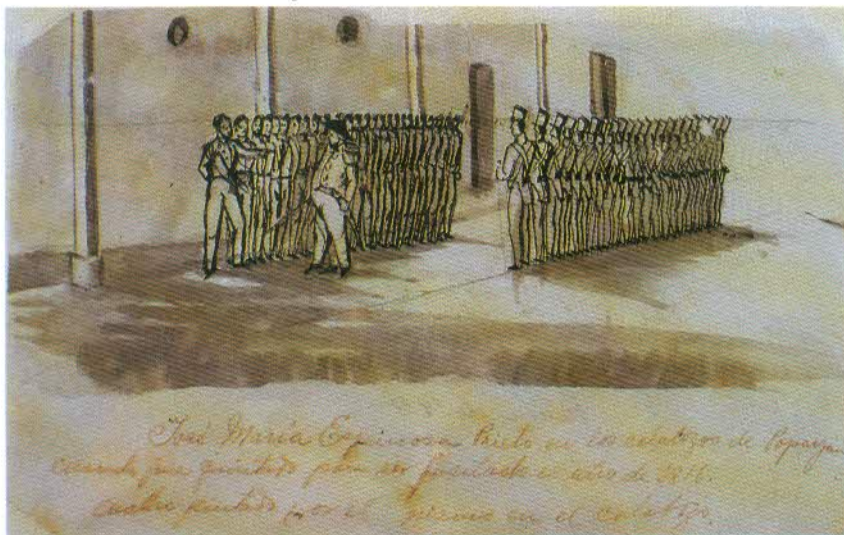 José María Espinosa Prieto en los calabozos de Popayan
cuando fue quintado para ser fusilado el año de 1816.
cuadro pintado por el mismo en el calabozo.